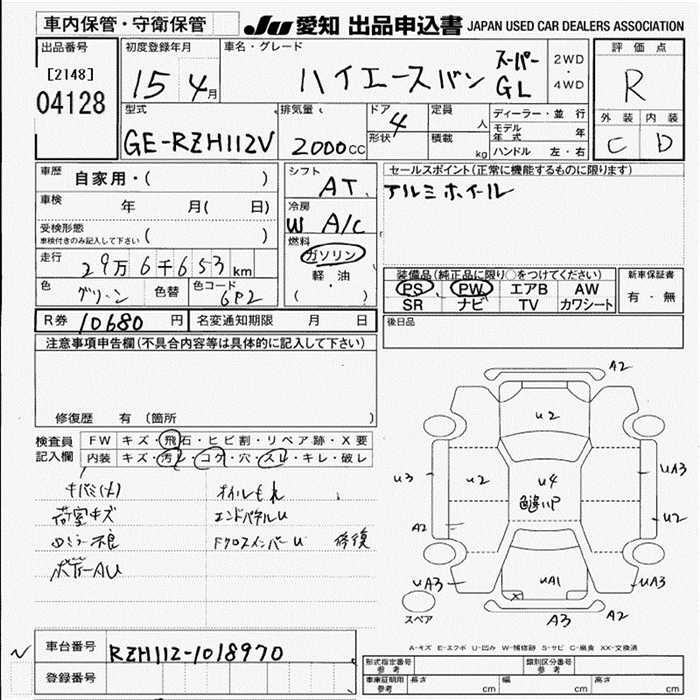 車内保管・守衛保管
JU 愛知 出品申込書 JAPAN USED CAR DEALERS ASSOCIATION
出品番号
[2148]
04128
初度登録年月
15 4月
車名・グレード
ハイエースバン スーパーGL
2WD
・
4WD
評価点
R
外装 内装
C D
型式
GE-RZH112V
排気量
2000cc
ドア
4
形状
定員
人
積載
kg
ディーラー・並行
モデル年式 年
ハンドル 左・右
車歴 自家用・( )
車検 年 月( 日)
受検形態
車検付きのみ記入して下さい ( )
走行 29万6千653km
色 グリーン 色替 色コード 6P2
シフト
AT
冷房
W A/C
燃料
ガソリン
・
軽油
( )
セールスポイント(正常に機能するものに限ります)
アルミホイール
装備品(純正品に限り○をつけてください)
PS PW エアB AW
SR ナビ TV カワシート
新車保証書
有・無
R券 10680円 名変通知期限 月 日
後日品
注意事項申告欄(不具合内容等は具体的に記入して下さい)
修復歴 有(箇所 )
検査員記入欄
FW キズ・飛石・ヒビ割・リペア跡・X要
内装 キズ・汚レ・コゲ・穴・スレ・キレ・破レ
オイルもれ
荷室キズ エンドパネルU
FクロスメンバーU 修復
ボデーAU
A2
U2
U3 U2 U4 UA3
U2
A2
UA3 UA1 UA3
A3 A2
スペア
A-キズ E-エクボ U-凹み W-補修跡 S-サビ C-腐食 XX-交換済
車台番号 RZH112-1018970
登録番号
形式指定番号 参考 類別区分番号 参考
車庫証明用 参考 長さ cm 幅 cm 高さ cm